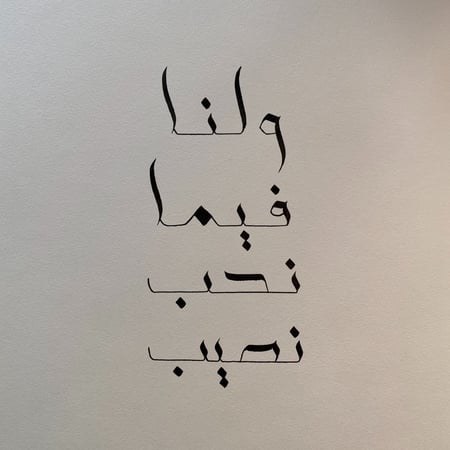 ولنا
فيما
نحب
نصيب